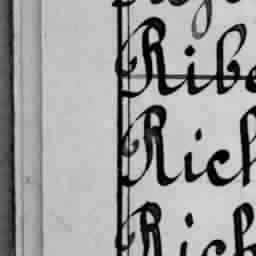 Ribe
Rich
Rich